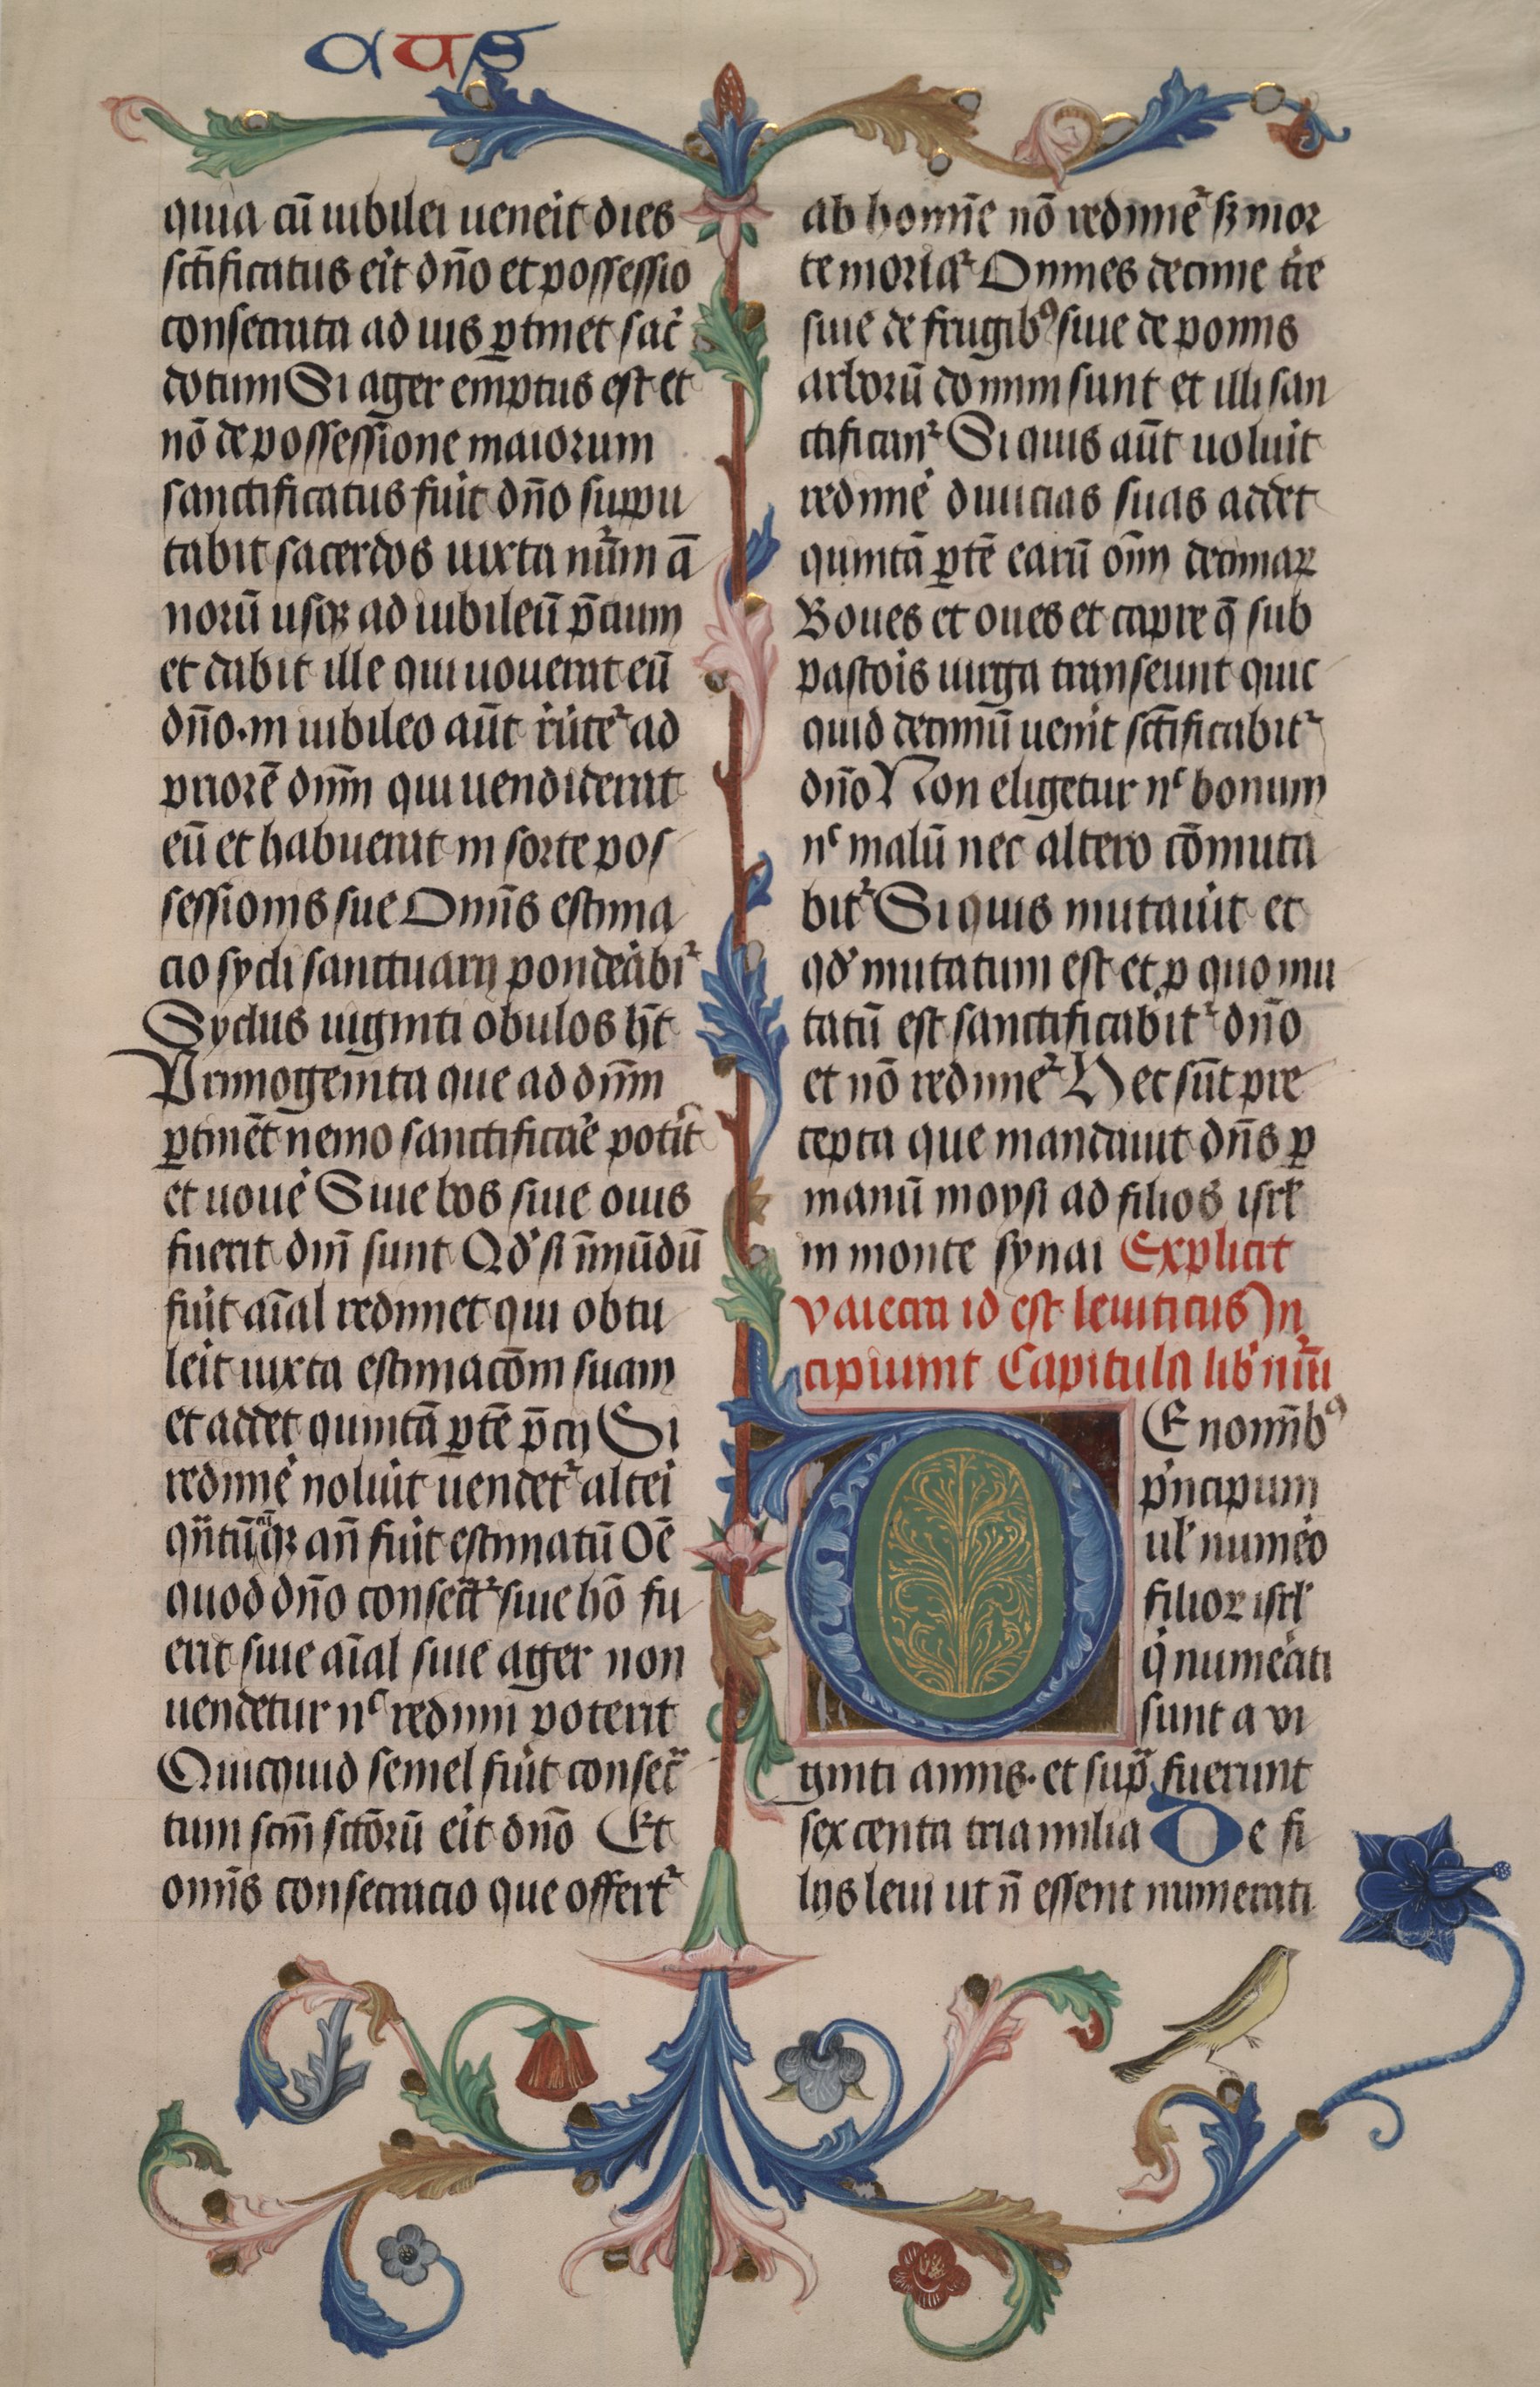 quia cū iubilei uen̾it dies
sc̄tificatus eit dn̄o et possessio
consecrata ad ius ꝑtinet sac̾
dotum Si ager emptus est et
nō de possessione maiorum
sanctificatus fuit dn̄o suppu
tabit sacerdos iuxta nūm ā
norū usqꝫ ad iubileū p̄cium
et dabit ille qui uouerat eū
dn̄o. in iubileo aūt ad
priorē dn̄m qui uendiderat
eū et habuerat in sorte pos
sessionis sue Omīs estima
cio sycli sanctuarij ponde̾abiᷣ
Syclus uiginti obulos hȳt
Primogenita que ad dn̄m
ꝑtinēt nemo sanctificar̾e pot̾it
et uoue̾ Siue bos siue ouis
fuerit dn̄i sunt Qd̾ si īmūdū
fu̾it aīal redimet qui obtu
le̾it iuxta estimacōm suam
et addet quintā ꝑtē p̄cij Si
redime̾ nolu̾it uendetᷣ alte̾i
an̄ fu̾it estimatū Oē
quod dn̄o siue hō fu
erit siue aīal siue ager non
uendetur nᶜ redimi poterit
Quicquid semel fu̾it consec̾ᵃ
tum scm̄ sctōrū e̾it dn̄o Et
omīs consecracio que offertᷣ
ab homīe nō redimeᷣ sꝫ mor
te moriaᷣ Omnes decime t̾re
siue de frugibꝰ siue de pomis
arborū domini sunt et illi san
ctificanᷣ Si quis aūt uolu̾it
redime̾ duicias suas addet
quintā ꝑtē earū oīm decimaꝝ
Boues et oues et capre q̄ sub
pasto̾is uirga transeunt quic
quid decimū uen̾it sc̄tificabitᷣ
dn̄o Non eligetur nᶜ bonum
nᶜ malū nec altero cōmuta
bitᷣ Si quis mutau̾it et
qd̾ mutatum est et p quo mu
tatū est sanctificabitᷣ dn̄o
et nō redimeᷣ Hec sūt pre
cepta que mandauit dn̄s ꝑ
manū moysi ad filios isrł
in monte synai Explicit
vaiecra id est leuiticus In
cipiunt Capitula lib̾ nūi
DE nomīibꝰ
p̾ncipum
ul̾ nume̾o
filioꝝ isrł
q̇ nume̾ati
sunt a vi
ginti annis. et supᵃ fuerunt
sexcenta tria milia De fi
lijs leui ut n̄ essent numerati